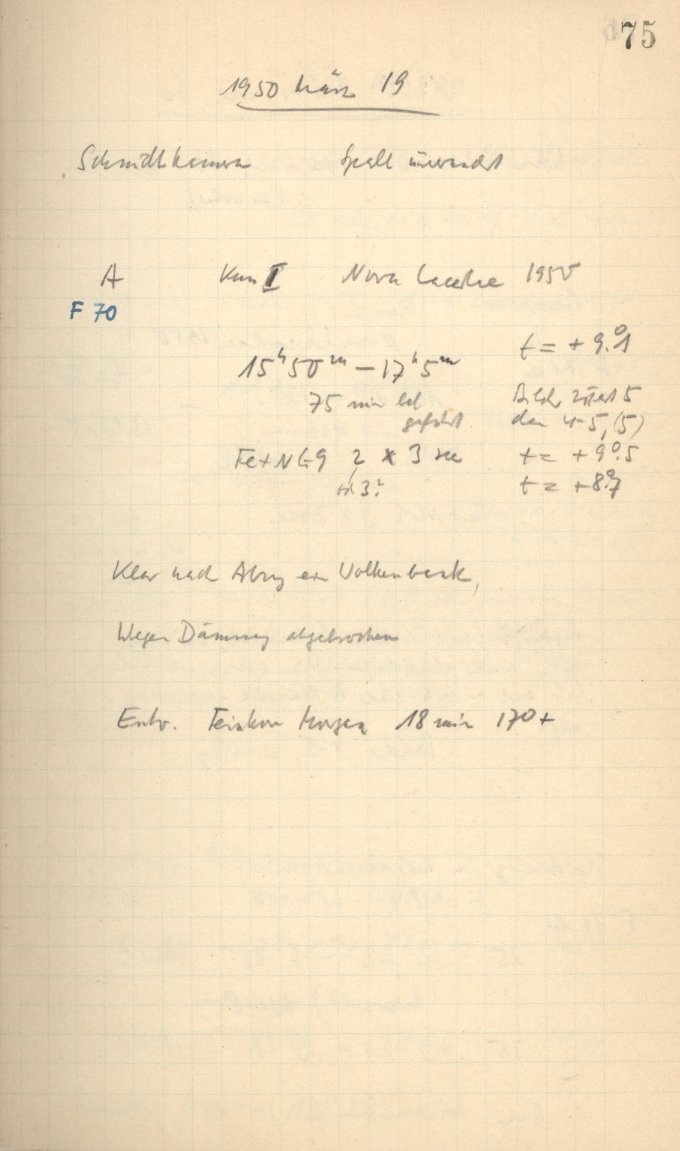 75
1950 März 19
Schmidtkamera Spalt unverändert
A Kass II Nova Lacertae 1950
F 70
15ʰ50ᵐ – 17ʰ5ᵐ t = + 9.°1
75 min bel Bilder zuerst 5
geführt dann 4-5, (5)
Fe+NG9 2 x 3 sec t = + 9°.5
3? t = + 8.°7
Klar nach Abzug einer Wolkenbank,
Wegen Dämmerung abgebrochen
Entw. Feinkorn Morgen 18 min 17°+